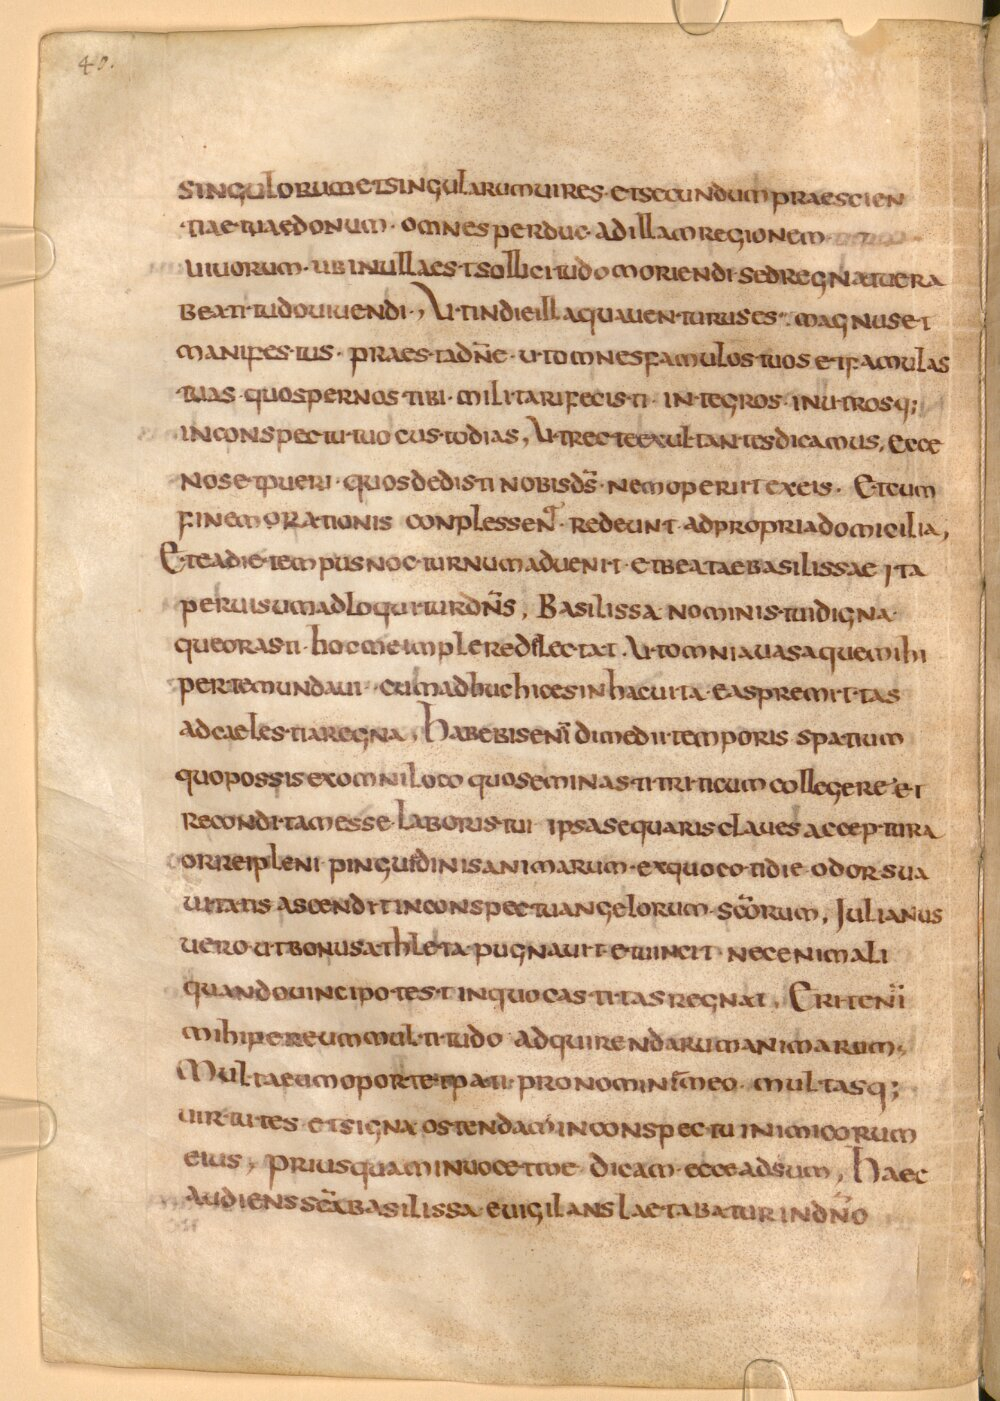 40.
singulorum et singularum uires · et secundum praescien
tiae tuae donum · omnes perduc · ad illam regionem
uiuorum · ubi nulla est sollicitudo moriendi · sed regnat uera
beatitudo uiuendi ·, Ut in die illa qua uenturus es · magnus et
manifestus · praesta dn̄e · ut omnes famulos tuos et famulas
tuas · quos per nos tibi · militari fecisti · integros · in utrosq;
in conspectu tuo custodias, Ut recte exultantes dicamus, Ecce
nos et pueri · quos dedisti nobis ds̄ · nemo periit ex eis · Et cum
finem orationis conplessent · redeunt ad propria domicilia,
Et eadie tempus nocturnum aduenit · et beatae basilissae ita
per uisum adloquitur dn̄s, Basilissa nominis tui digna
que orasti · hoc me implere delectat · Ut omnia uasa que mihi
per te mundaui · cum adhuc hic es in hac uita · eas premittas
ad caelestia regna, habebis enī dimedii temporis spatium
quo possis ex omni loco quo seminasti triticum collegere et
recondita messe laboris tui ipsa sequaris claues acceptura
orrei pleni pinguidinis animarum · ex quo cotidie odor sua
uitatis ascendit in conspectu angelorum sc̄orum, Julianus
uero ut bonus athleta pugnauit et uincit · nec enim ali
quando uinci potest in quo castitas regnat, Erit enī
mihi per eum multitudo adquirendarum animarum,
Multa eum oportet pati · pro nomini meo · multasq;
uirtutes et signa ostendam in conspectu inimicorum
eius, priusquam inuocet me dicam · ecce adsum, haec
audiens sc̄a basilissa euigilans laetabatur in dn̄o